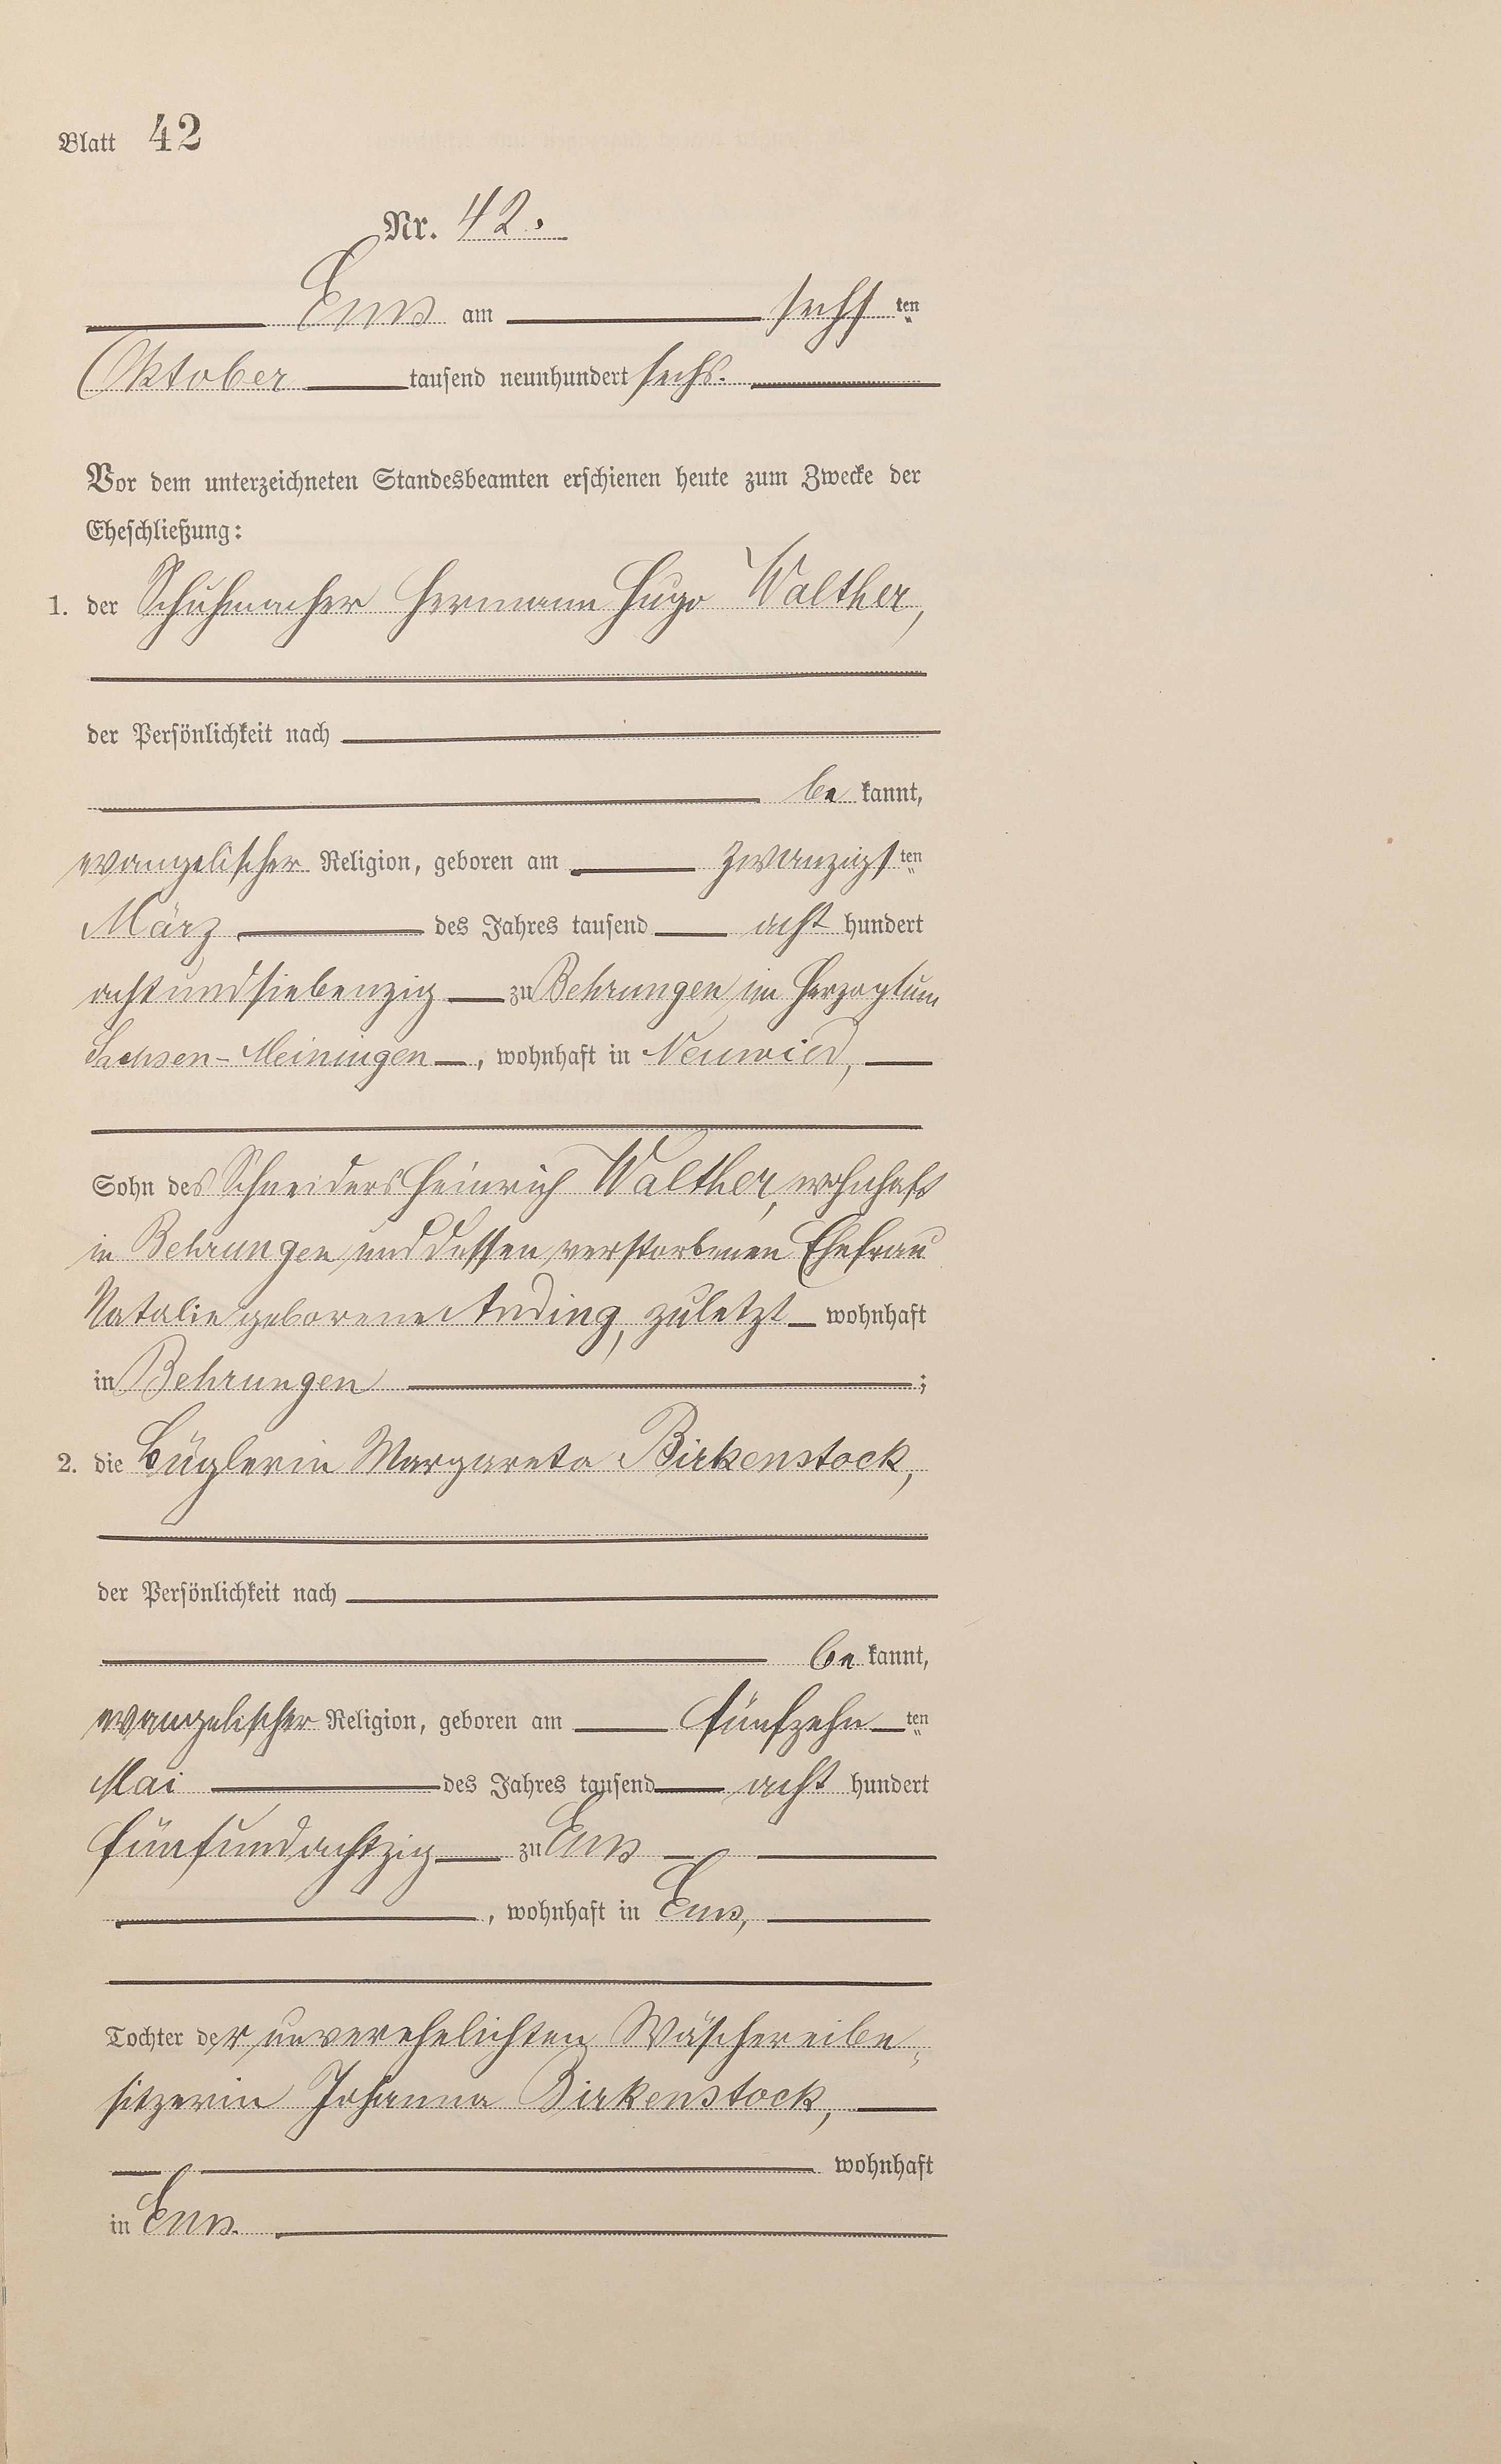 Blatt 42
Nr. 42.
Ems am sechsten
Oktober tausend neunhundert sechs.
Vor dem unterzeichneten Standesbeamten erschienen heute zum Zwecke der
Eheschließung:
1. der Schuhmacher Hermann Hugo Walther,
der Persönlichkeit nach
be kannt,
evangelischer Religion, geboren am zwanzigsten
März des Jahres tausend acht hundert
achtundsiebenzig zu Behrungen im Herzogtum
Sachsen-Meiningen, wohnhaft in Neuwied,
Sohn des Schneiders Heinrich Walther, wohnhaft
in Behrungen und dessen verstorbenen Ehefrau
Natalie geborener Anding, zuletzt wohnhaft
in Behrungen ;
2. die Büglerin Margareta Birkenstock,
der Persönlichkeit nach
be kannt,
evangelischer Religion, geboren am fünfzehnten
Mai des Jahres tausend acht hundert
fünfundachtzig zu Ems
, wohnhaft in Ems,
Tochter der unverehelichten Wäschereibe-
sitzerin Johanna Birkenstock,
wohnhaft
in Ems.